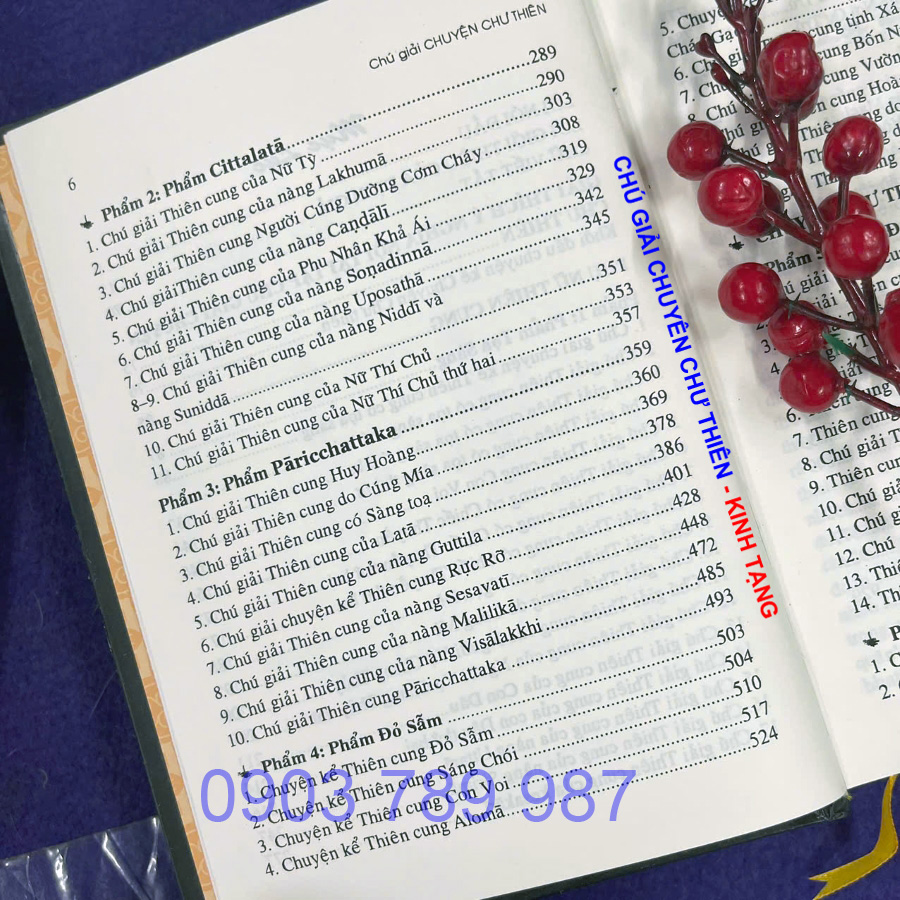 Chú giải CHUYỆN CHƯ THIÊN
6
Phẩm 2: Phẩm Cittalatā 289
1. Chú giải Thiên cung của Nữ Tỳ 290
2. Chú giải Thiên cung của nàng Lakhumā 303
3. Chú giải Thiên cung Người Cúng Dường Cơm Cháy 308
4. Chú giảiThiên cung của nàng Caṇḍālī 319
5. Chú giải Thiên cung của Phu Nhân Khả Ái 329
6. Chú giải Thiên cung của nàng Soṇadinnā 342
7. Chú giải Thiên cung của nàng Uposathā 345
8–9. Chú giải Thiên cung của nàng Niddī và
nàng Suniddā 351
10. Chú giải Thiên cung của Nữ Thí Chủ 353
11. Chú giải Thiên cung của Nữ Thí Chủ thứ hai 357
Phẩm 3: Phẩm Pāricchattaka 359
1. Chú giải Thiên cung Huy Hoàng 360
2. Chú giải Thiên cung do Cúng Mía 369
3. Chú giải Thiên cung có Sàng toạ 378
4. Chú giải Thiên cung của Latā 386
5. Chú giải Thiên cung của nàng Guttila 401
6. Chú giải chuyện kể Thiên cung Rực Rỡ 428
7. Chú giải Thiên cung của nàng Sesavatī 448
8. Chú giải Thiên cung của nàng Malilikā 472
9. Chú giải Thiên cung của nàng Visālakkhi 485
10. Chú giải Thiên cung Pāricchattaka 493
Phẩm 4: Phẩm Đỏ Sẫm 503
1. Chuyện kể Thiên cung Đỏ Sẫm 504
2. Chuyện kể Thiên cung Sáng Chói 510
3. Chuyện kể Thiên cung Con Voi 517
4. Chuyện kể Thiên cung Alomā 524
CHÚ GIẢI CHUYỆN CHƯ THIÊN - KINH TẠNG
0903 789 987
5. Chuyện
cung tịnh Xá
6. Chú cung Bốn
7. cung Vườn
8. Chú cung Hoàn
Thiên cung do
6. Chú
7. Thiên cung
8. Chú giải T
9. Thiên cun
10. Chú giải
11. Chú giả
12. Chú
13. Thiê
14. Th
1. C
2.